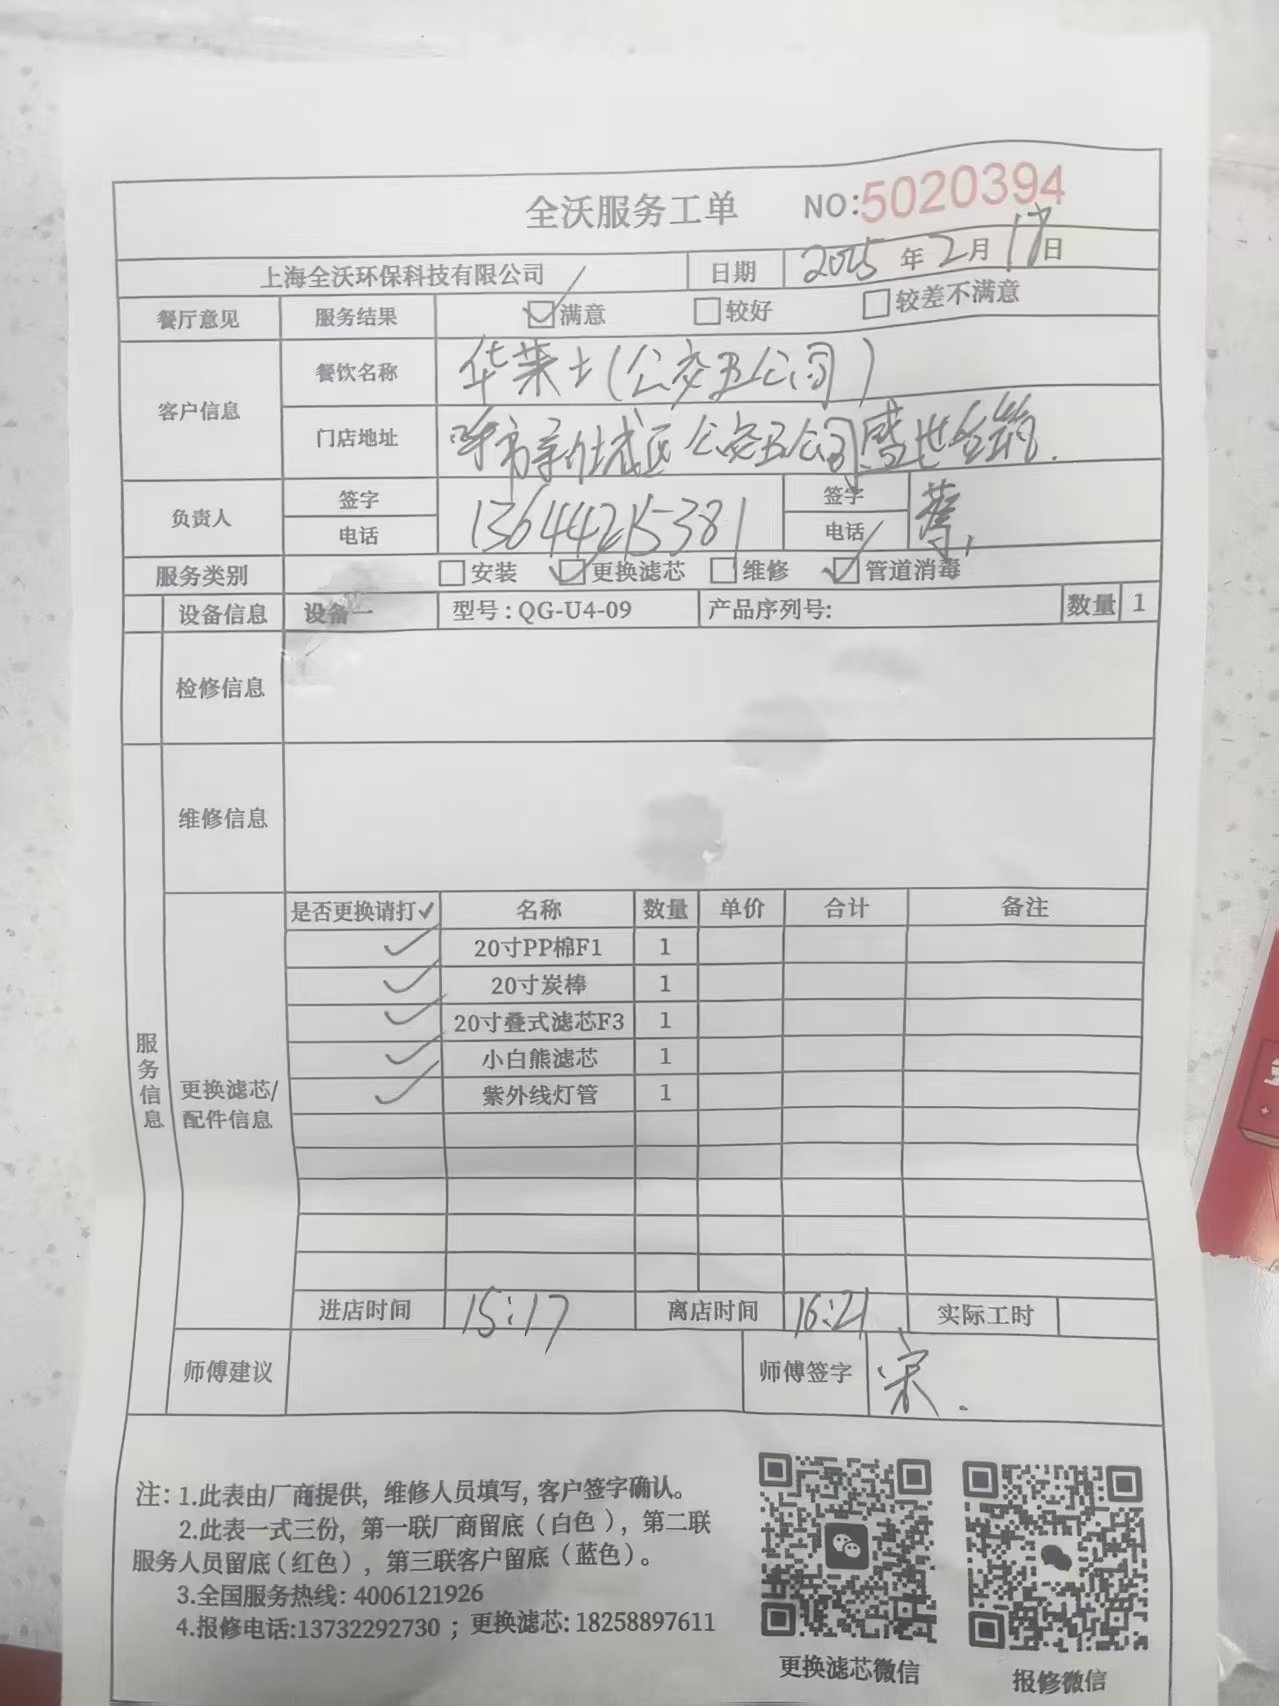 全沃服务工单 NO:5020394
上海全沃环保科技有限公司 日期 2025年2月17日
餐厅意见 服务结果 满意 较好 较差不满意
客户信息 餐饮名称 华莱士(公交五公司)
门店地址 呼市新城区公交五公司盛世名筑.
负责人 签字 签字
电话 13644215381 电话
服务类别 安装 更换滤芯 维修 管道消毒
设备信息 设备一 型号:QG-U4-09 产品序列号: 数量 1
检修信息
维修信息
服务信息
更换滤芯/配件信息
是否更换请打✓ 名称 数量 单价 合计 备注
✓ 20寸PP棉F1 1
✓ 20寸炭棒 1
✓ 20寸叠式滤芯F3 1
✓ 小白熊滤芯 1
✓ 紫外线灯管 1
进店时间 15:17 离店时间 16:21 实际工时
师傅建议 师傅签字 宋.
注: 1.此表由厂商提供, 维修人员填写, 客户签字确认。
2.此表一式三份, 第一联厂商留底(白色), 第二联
服务人员留底(红色), 第三联客户留底(蓝色)。
3.全国服务热线: 4006121926
4.报修电话:13732292730 ; 更换滤芯: 18258897611
更换滤芯微信 报修微信